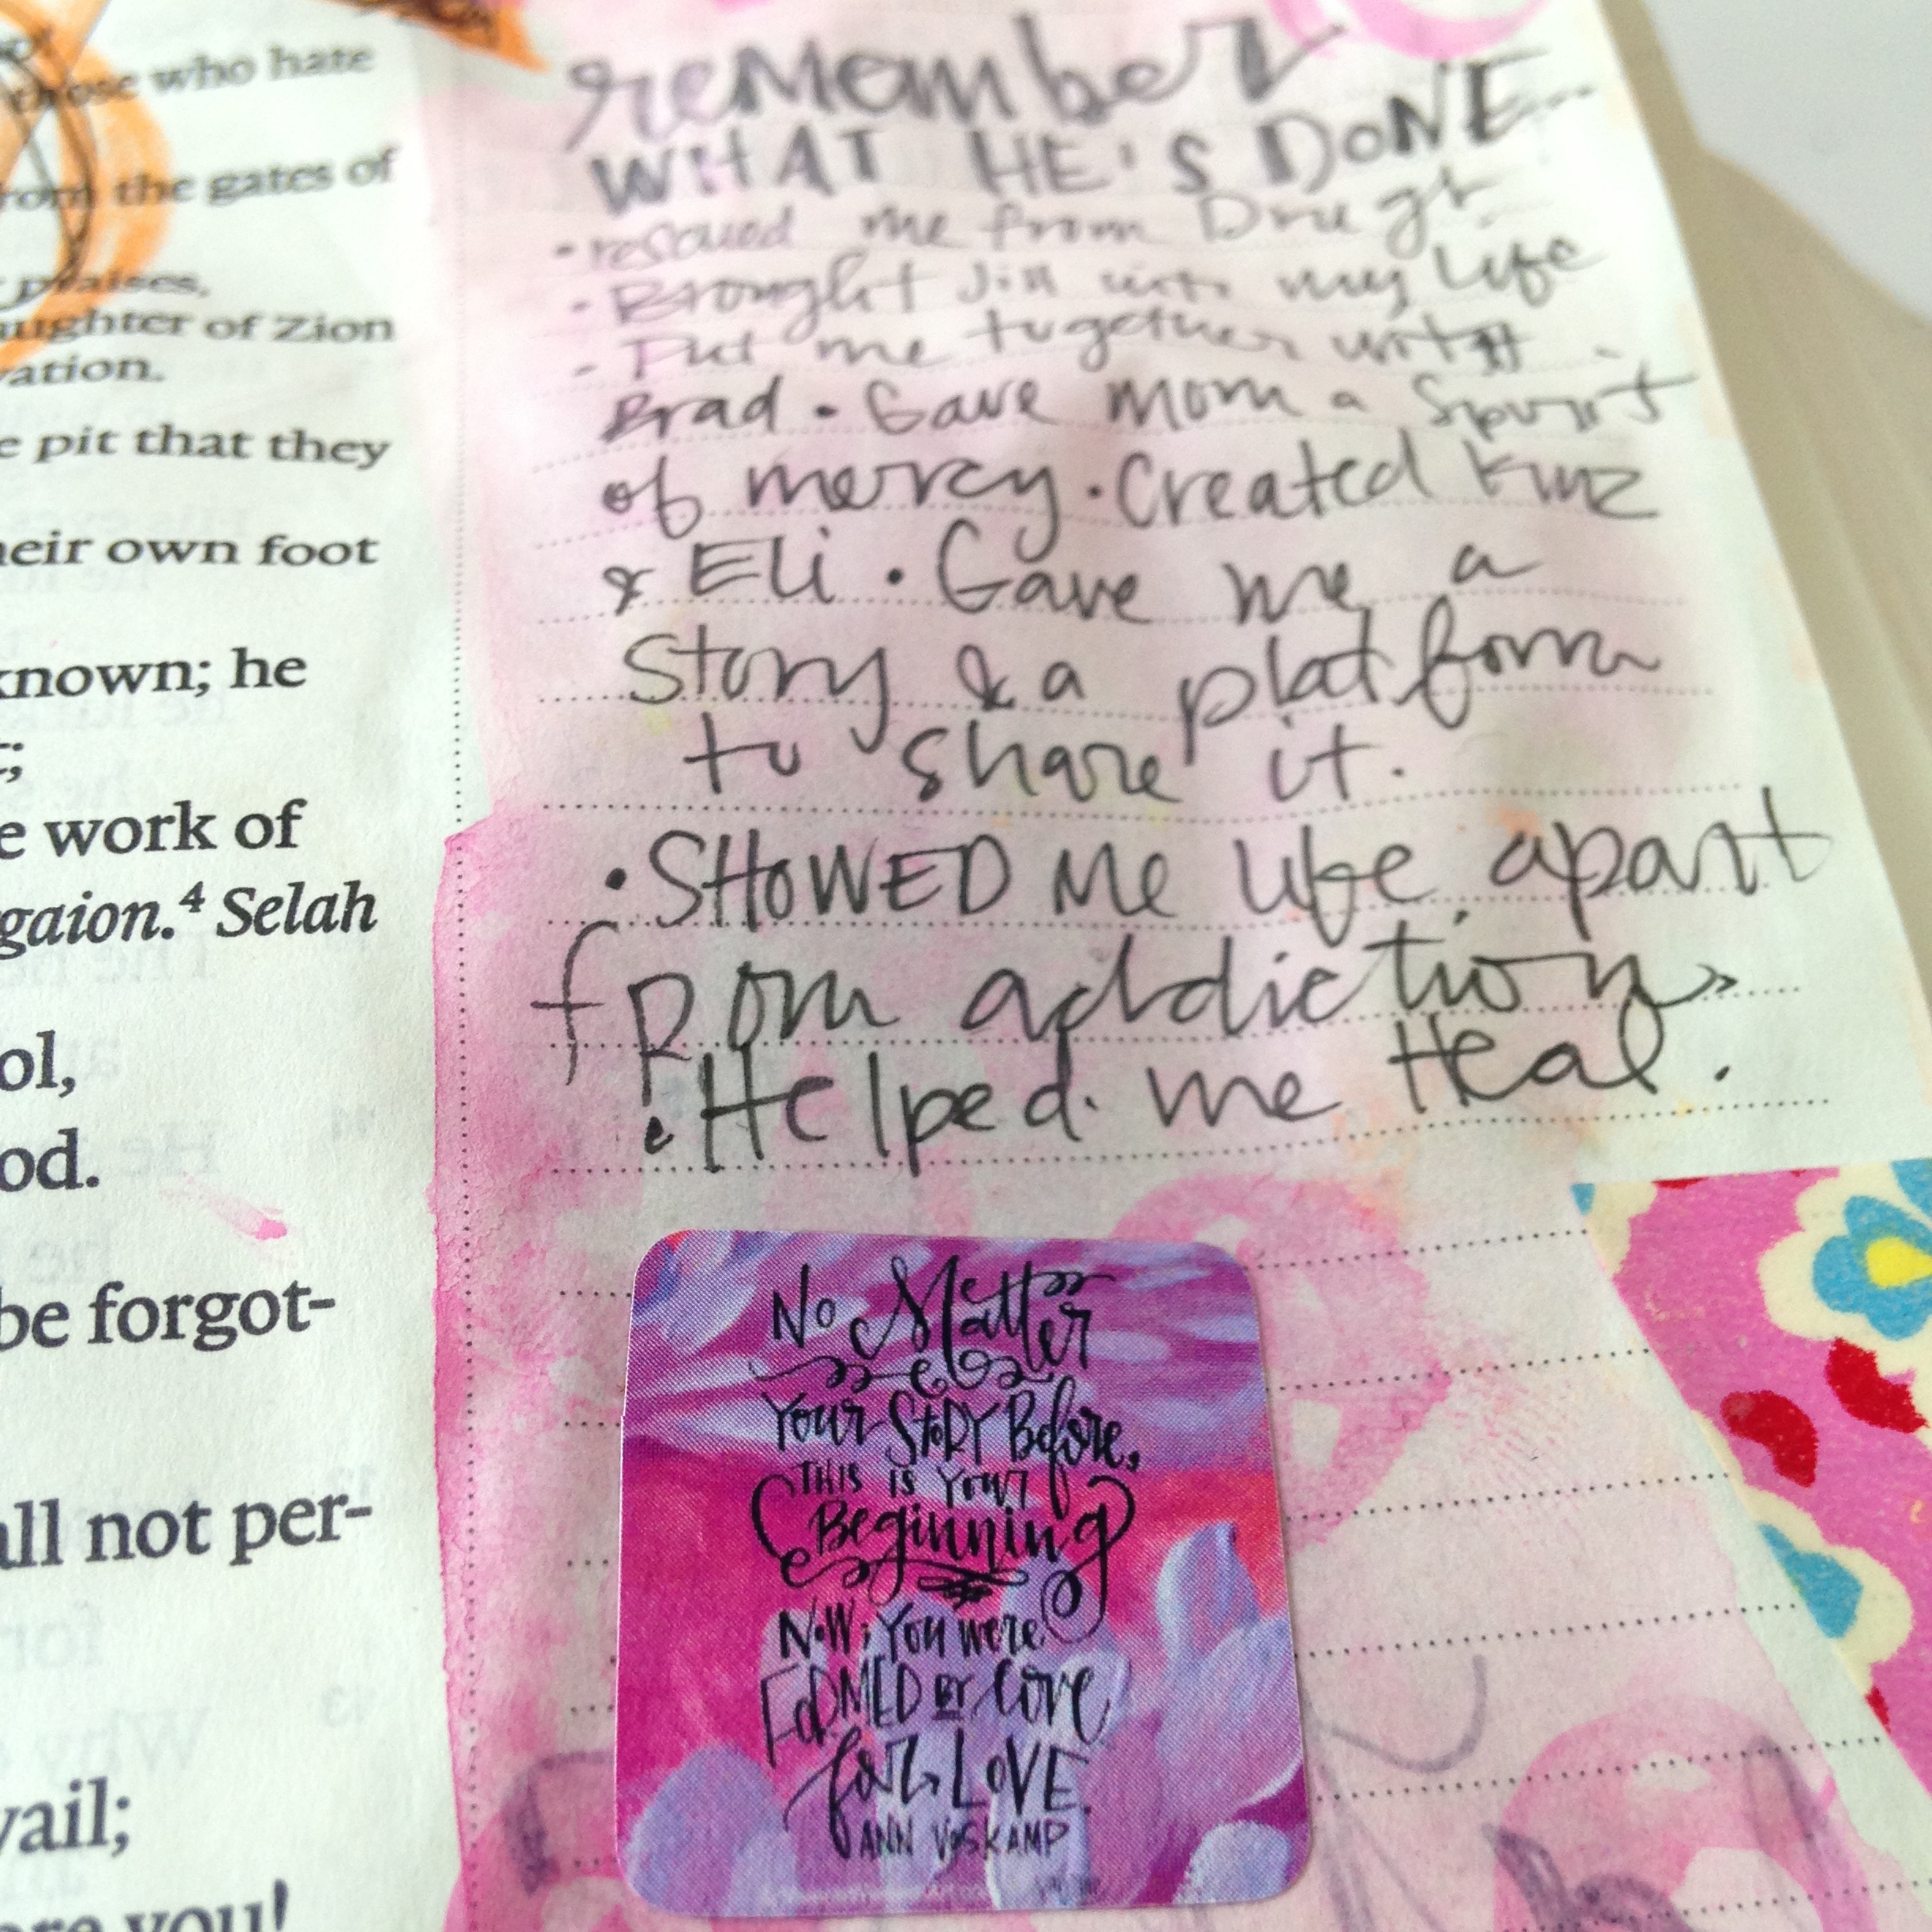 those who hate
from the gates of
praises,
aughter of Zion
ation.
e pit that they
heir own foot
known; he
t;
e work of
gaion.⁴ Selah
ol,
od.
be forgot-
all not per-
vail;
ore you!
remember
WHAT HE'S DONE...
• rescued me from
• Brought Jill into my life
- Put me together with
Brad • Gave mom a Spirit
of mercy • Created Kinz
& Eli • Gave me a
Story & a platform
to share it.
• SHOWED Me life apart
from addiction
• Helped me Heal.
No Matter
Your Story Before,
THIS IS Your
Beginning
Now; You were
FORMED BY Love
for LOVE.
ANN VOSKAMP